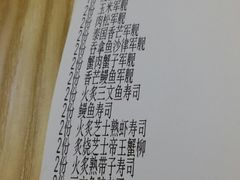 2份 玉米军舰
2份 肉松军舰
2份 泰国香芒军舰
2份 吞拿鱼沙律军舰
2份 蟹肉蟹子军舰
2份 香芒鳗鱼军舰
2份 火炙三文鱼寿司
2份 鳗鱼寿司
2份 火炙芝士熟虾寿司
2份 火烧芝士帝王蟹柳
2份 火炙熟带子寿司